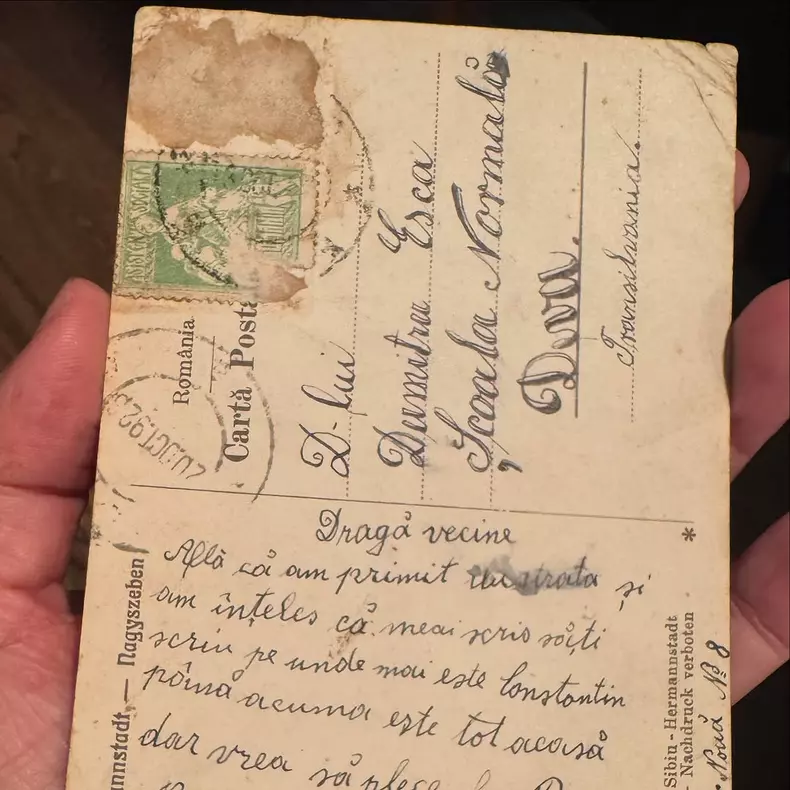 România
Cartă Postă
20.OCT.92
D-lui
Dumitru Esca
Școala Normală
Deva.
Transilvania.
*
Dragă vecine
Află că am primit ilustrata și
am înțeles că meai scris săiți
scriu pe unde mai este Constantin
până acuma este tot acasă
dar vrea să plece
nnstadt. — Nagyszeben
Sibiu - Hermannstadt
- Nachdruck verboten
Nouă № 8